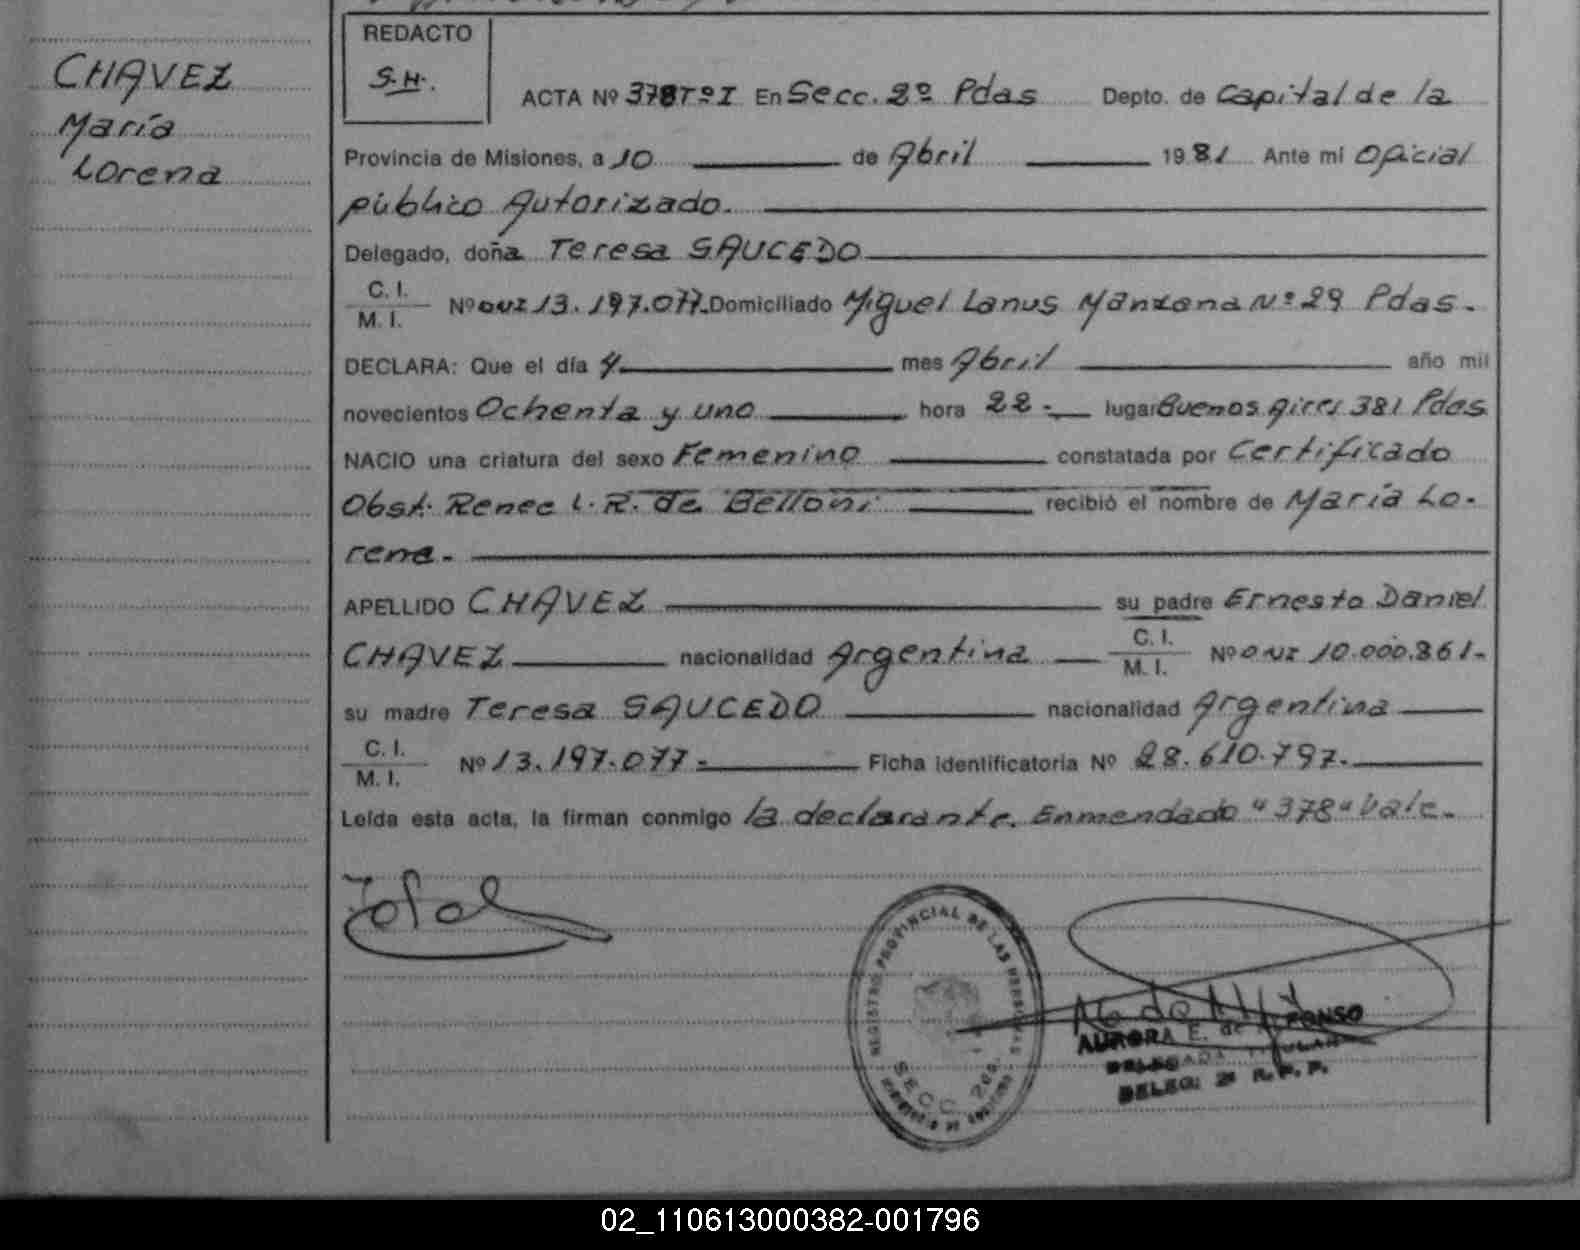 REDACTO
S.H.
CHAVEZ
María
Lorena
ACTA Nº 378 Tº I En Secc. 2º Pdas Depto. de Capital de la
Provincia de Misiones, a 10 de Abril 1981 Ante mi Oficial
público Autorizado.
Delegado, doña Teresa SAUCEDO
C. I.
M. I. Nº DNI 13.197.077. Domiciliado Miguel Lanus Manzana Nº 29 Pdas.
DECLARA: Que el día 4 mes Abril año mil
novecientos Ochenta y uno hora 22.- lugar Buenos Aires 381 Pdas
NACIO una criatura del sexo Femenino constatada por Certificado
Obst. Renee L. R. de Belloni recibió el nombre de María Lo-
rena.
APELLIDO CHAVEZ su padre Ernesto Daniel
CHAVEZ nacionalidad Argentina C. I.
M. I. Nº DNI 10.000.861.-
su madre Teresa SAUCEDO nacionalidad Argentina
C. I.
M. I. Nº 13.197.077.- Ficha identificatoria Nº 28.610.797.
Leída esta acta, la firman conmigo la declarante. Enmendado "378" Vale.
REGISTRO PROVINCIAL DE LAS PERSONAS
SECC. 2da.
AURORA E. de ALFONSO
DELEGADA TITULAR
DELEG. 2ª R. P. P.
02_110613000382-001796